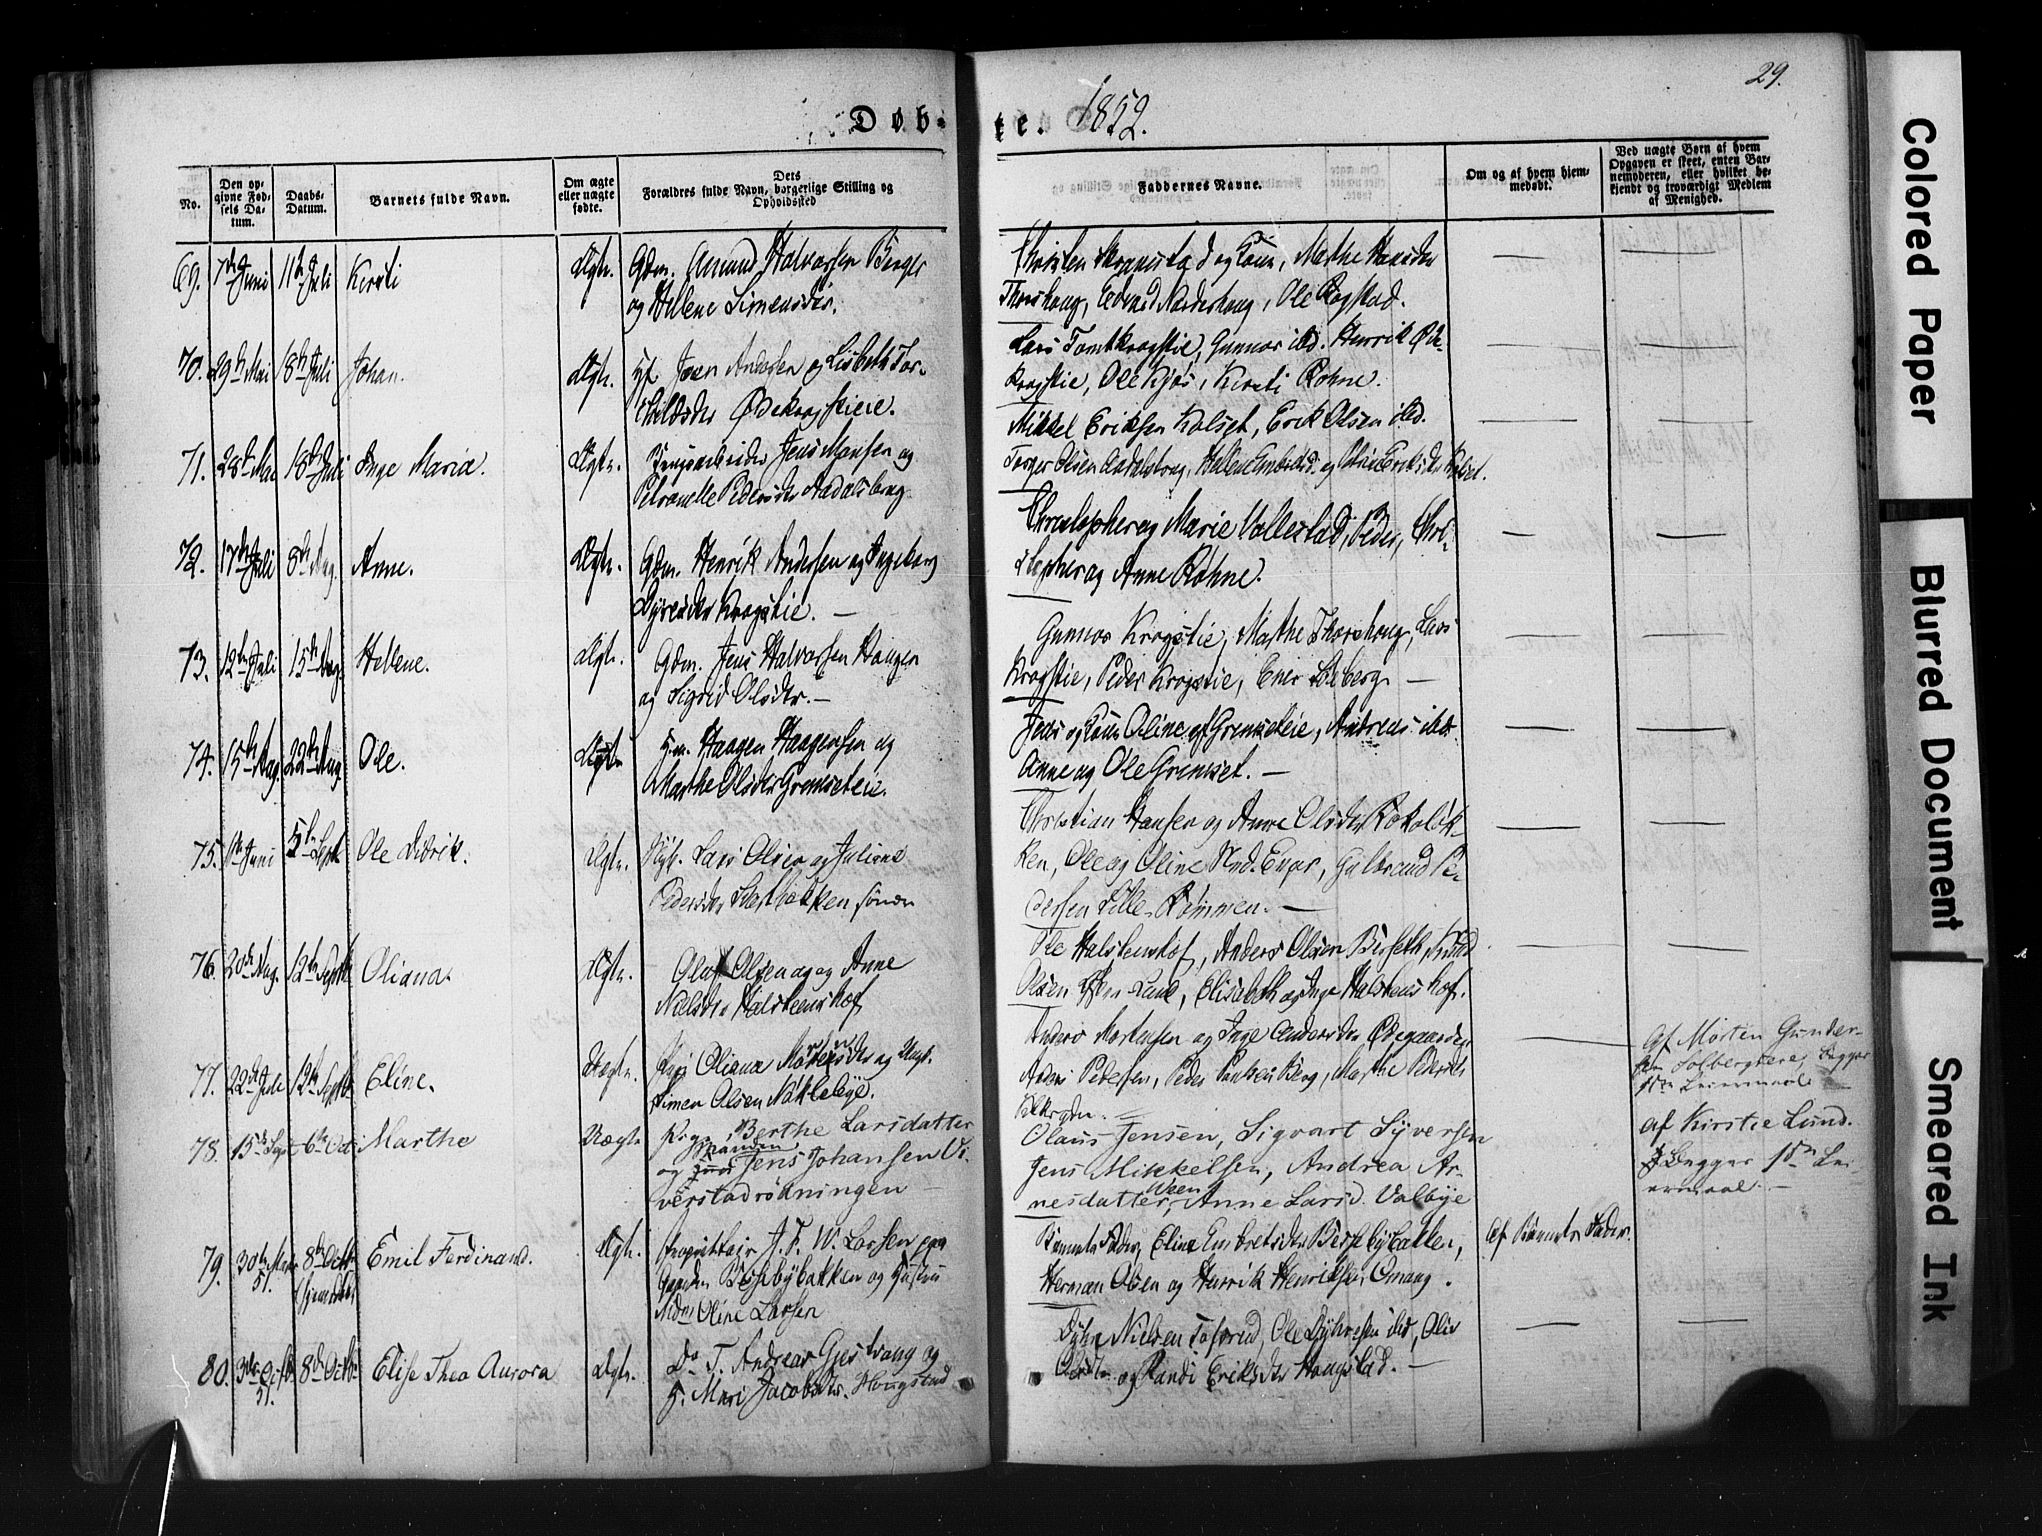 29.
Døb-
te. 1852.
No.
Den op-
givne Fød-
sels Da-
tum.
Daabs-
Datum.
Barnets fulde Navn.
Om ægte
eller uægte
fødte.
Dets
Forældres fulde Navn, borgerlige Stilling og
Opholdssted
Faddernes Navne.
Om og af hvem hjem-
medøbt.
Ved uægte Børn af hvem
Opgaven er skeet, enten Bar-
nemoderen, eller hvilket be-
kjendt og troværdigt Medlem
af Menighed.
69. 7de Juni 11te Juli Kirsti Ægte. Gdm. Amund Halvorsen Berger
og Hellene Simensdtr.
Thorshoug, Edvard Norderhoug, Ole Rogstad.
70. 29de Mai 18de Juli Johan. Ægte. Jf. Joen Andersen og Lisbeth Tor-
kildsdtr Ødekrogstieie.
Lars Tomtkrogstie, Gunnar ibd. Henrik Øde-
krogstie, Ole Kjøs, Kirsti Rohne.
71. 28de Mai 18de Juli Inge Maria. Ægte. Brugsarbeider Jens Monsen og
Petronelle Pedersdtr Aadalsbrug
Mikkel Eriksen Kolset, Erik Olsen ibd.
Torger Olsen Aadalsbrug, Hellene Embretsd. og
72. 17de Juli 8de Aug. Anne. Ægte. Gdm. Henrik Andersen og Ingeborg
Syversdtr Krogstie. —
Christopher og Marie Vollestad, Peder, Chri-
stopher og Anne Rohne.
73. 12te Juli 15de Aug. Hellene. Ægte. Gdm. Jens Halvorsen Hauger
og Sigrid Olsdtr. —
Gunnar Krogstie, Marthe Thorshoug, Lars
Krogstie, Peder Krogstie, Ener Solberg —
74. 15de Aug. 22de Aug. Ole. Ægte. Hm. Haagen Haagensen og
Marthe Olsdtr Gremseteie.
Jens og Kone Oline af Gremseteie, Andreas ibd.
Anne og Ole Gremset. —
75. 1ste Juni 5te Sept. Ole Didrik. Ægte. Lars Olsen og Juliane
Pedersdtr Sletbakken søndre
Christian Hansen og Anne Olsdtr Rokoløk-
ken, Ole og Oline Ned. Enger, Gulbrand Pe-
dersen Lille-Rømmen. —
76. 20de Aug. 12te Septbr Oliana. Ægte. Oluf Olsen og og Anne
Nielsdtr Halsteenshof
Ole Halsteenshof, Anders Olsen Berseth, Knud
Olsen Lund, Elisabeth og Inge Halsteenshof.
77. 22de Juli 12te Septbr Eline. Uægte. Pige Oliana Mortensdtr og Ungk.
Simen Olsen Nøkleby.
Anders Mortensen og Inge Andersdtr Ødegaarden
Anders Pedersen, Peder Paulsen Berg, Marthe Pedersdtr
Af Morten Gunder-
sen Solbergteie, begges
1ste Leiermaal —
78. 15de Sept 6te Oct Marthe Uægte Pige Berthe Larsdatter
og Jens Johansen Vi-
verstadrødningen —
Olaus Jensen, Sigvart Syversen
Jens Mikkelsen, Andrea Ar-
nesdatter Ween, Anne Larsd. Valbye
Af Kirstie Lund.
Begges 1ste Lei-
ermaal. —
79. 30te Marts
51. 8de Octbr Emil Ferdinand. Ægte. Proprietair J. F. W. Larsen paa
Gaarden Bessebybakken og Hustru
Mdm Oline Larsen
Barnets Fader, Eline Embretsdtr Bessebybakken,
Herman Olsen og Henrik Henriksen Omang.
Af Barnets Fader.
80. 3die Octbr
51. 8de Octbr Elise Thea Aurora Ægte. Do T. Andreas Gjestvang og
H. Mari Jacobsdtr. Hougstad
Dyhre Nielsen Toserud, Ole Dyhresen ibd, Oliv
og Randi Eriksdtr Hougstad. —
Colored Paper
Blurred Document
Smeared Ink